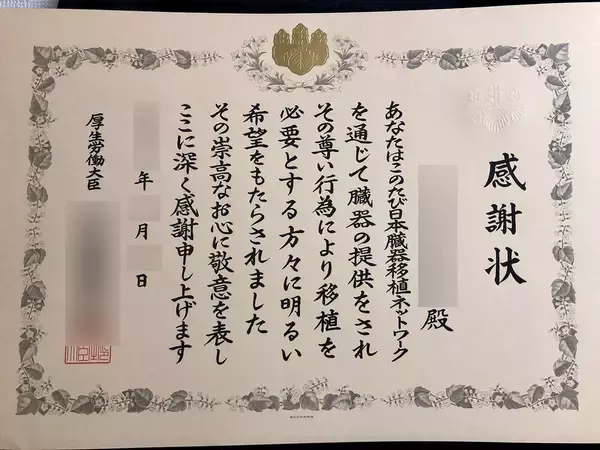 感謝状
殿
あなたはこのたび日本臓器移植ネットワーク
を通じて臓器の提供をされ
その尊い行為により移植を
必要とする方々に明るい
希望をもたらされました
その崇高なお心に敬意を表し
ここに深く感謝申し上げます
年 月 日
厚生労働大臣